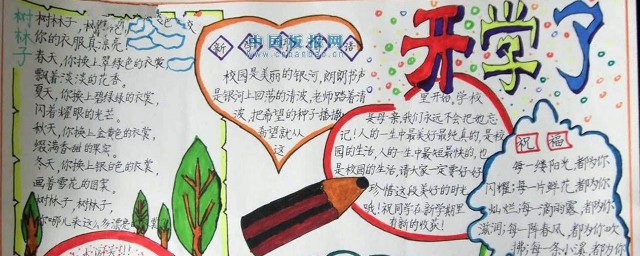 树林子
树林子，树
你的衣服真漂亮
春天，你换上翠绿色的衣裳
飘着淡淡的花香。
夏天，你换上碧绿绿的衣裳，
闪着耀眼的光芒。
秋天，你换上金黄色的衣裳，
缀满香甜的果实。
冬天，你换上银白色的衣裳
画着雪花的图案。
树林子，树林子，
你哪儿来这么多漂亮
新学
语
中国板报网
www.chuandao.cn
校园是美丽的银河，朗朗书声
是银河上回荡的清波，老师踏着清
波，把希望的种子播撒
希望就从
这
里开始，学校
是母亲，我们永远不会把他忘
记！人的一生中最美好最纯真的，是校
园的生活，人的一生中最短最快的，也
是校园的生活，请大家一定要好好
珍惜这段美好的时光
哦！祝同学在新学期里
有新的收获！
开学了
祝福
每一缕阳光，都为你
闪耀；每一片鲜花，都为你
灿烂；每一滴雨露，都为你
滋润；每一阵春风，都为你吹
拂；每一条小溪，都为你